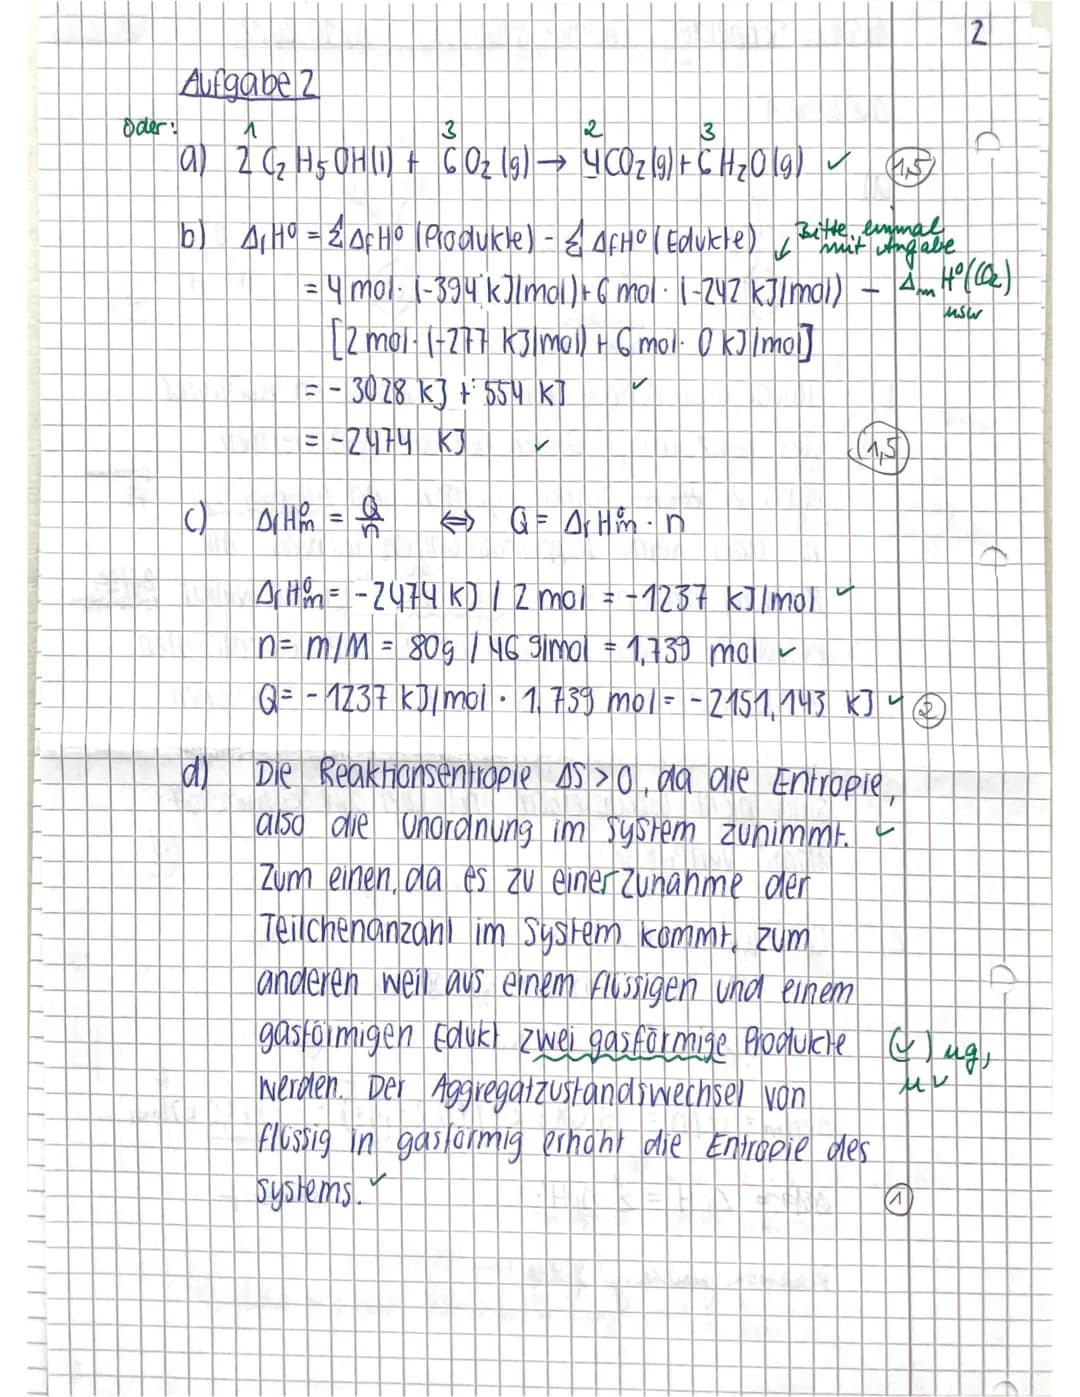 2
Aufgabe 2
oder: 1 3 2 3
a) 2 C₂H₅OH(l) + 6 O₂ (g) → 4CO₂(g) + 6 H₂O(g) ✓ 1,5
b) ΔrH⁰ = Σ ΔfH⁰ (Produkte) - Σ ΔfH⁰ (Edukte) ↓ Bitte einmal
mit Angabe
= 4 mol · (-394 kJ/mol) + 6 mol · (-242 kJ/mol) - ΔmH⁰(CO₂)
usw
[2 mol · (-277 kJ/mol) + 6 mol · 0 kJ/mol]
= - 3028 kJ + 554 kJ ✓
= -2474 kJ ✓ 1,5
c) ΔrH⁰m = Q/n ⇔ Q = ΔrH⁰m · n
ΔrH⁰m = -2474 kJ / 2 mol = -1237 kJ/mol ✓
n = m/M = 80g / 46 g/mol = 1,739 mol ✓
Q = - 1237 kJ/mol · 1,739 mol = - 2151,143 kJ ✓ 2
d) Die Reaktionsentropie ΔS > 0, da die Entropie,
also die Unordnung im System zunimmt. ✓
Zum einen, da es zu einer Zunahme der
Teilchenanzahl im System kommt, zum
anderen weil aus einem flüssigen und einem
gasförmigen Edukt zwei gasförmige Produkte (✓) ug,
werden. Der Aggregatzustandswechsel von
flüssig in gasförmig erhöht die Entropie des
Systems. ✓ 1